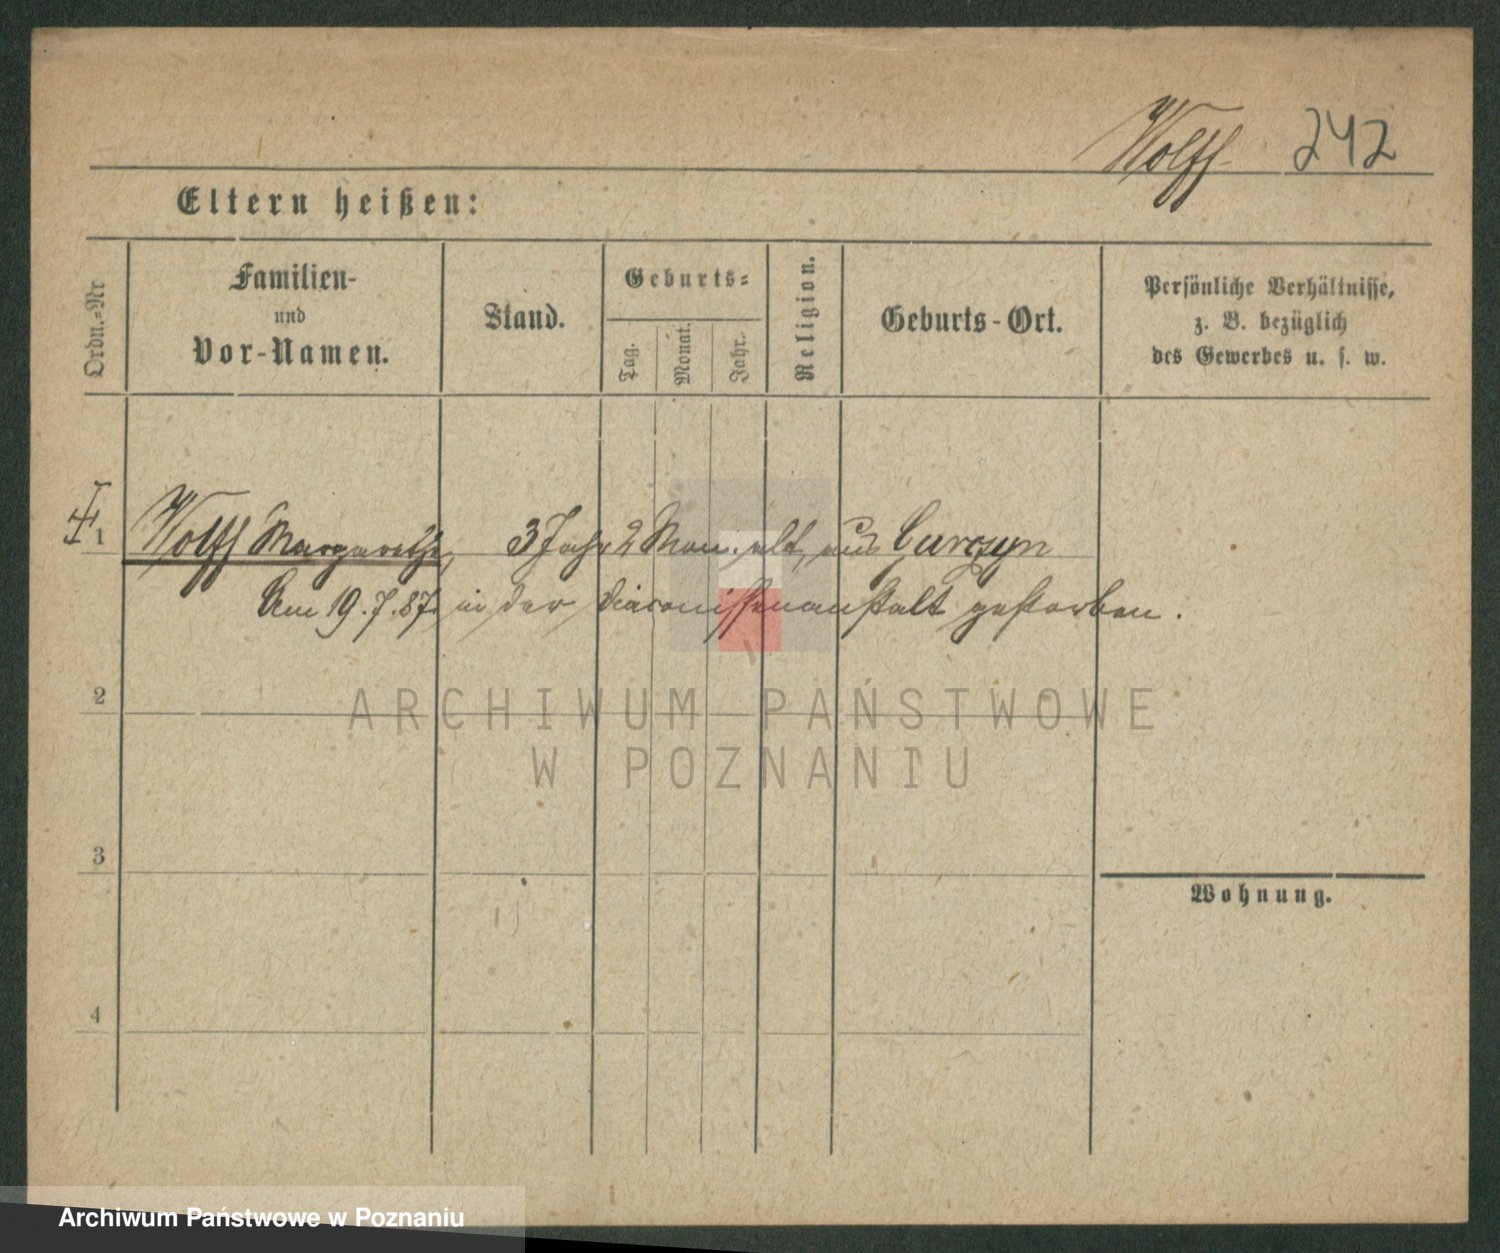 Wolff 242
Eltern heißen:
Ordn.-Nr
Familien-
und
Vor-Namen.
Stand.
Geburts-
Tag.
Monat.
Jahr.
Religion.
Geburts-Ort.
Persönliche Verhältnisse,
z. B. bezüglich
des Gewerbes u. s. w.
1 Wolff Margarethe, 3 Jahr 2 Mon. alt, aus Gurczyn
Am 19.7.87. in der Diaconissenanstalt gestorben.
2
3
4
Wohnung.
ARCHIWUM PAŃSTWOWE
W POZNANIU
Archiwum Państwowe w Poznaniu